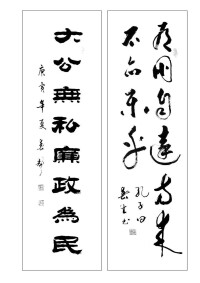 有朋自遠方来
不亦乐乎
孔子曰
大公無私廉政為民
庚寅年夏